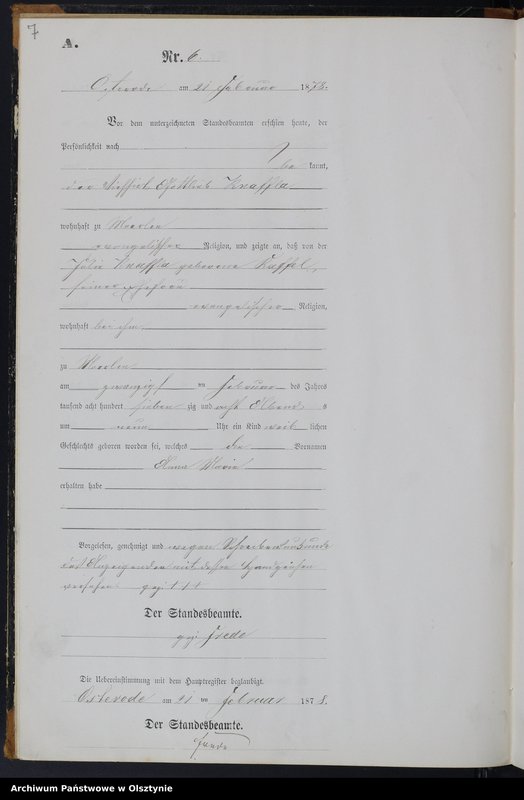 7
A.
Nr. 6.
Osterode am 21 Februar 1878.
Vor dem unterzeichneten Standesbeamten erschien heute, der
Persönlichkeit nach
be kannt,
Gottlieb
wohnhaft zu
evangelischer Religion, und zeigte an, daß von der
Julie geborene
seiner Ehefrau
evangelischer Religion,
wohnhaft bei ihm
zu
am zwanzigst en Februar des Jahres
tausend acht hundert sieben zig und acht Abend s
um neun Uhr ein Kind weib lichen
Geschlechts geboren worden sei, welches den Vornamen
Anna Marie
erhalten habe
Vorgelesen, genehmigt und wegen Schreibensunkunde
des Anzeigenden mit dessen Handzeichen
versehen gez: † † †
Der Standesbeamte.
gez:
Die Uebereinstimmung mit dem Hauptregister beglaubigt.
Osterode am 21 ten Februar 1878.
Der Standesbeamte.
Archiwum Państwowe w Olsztynie